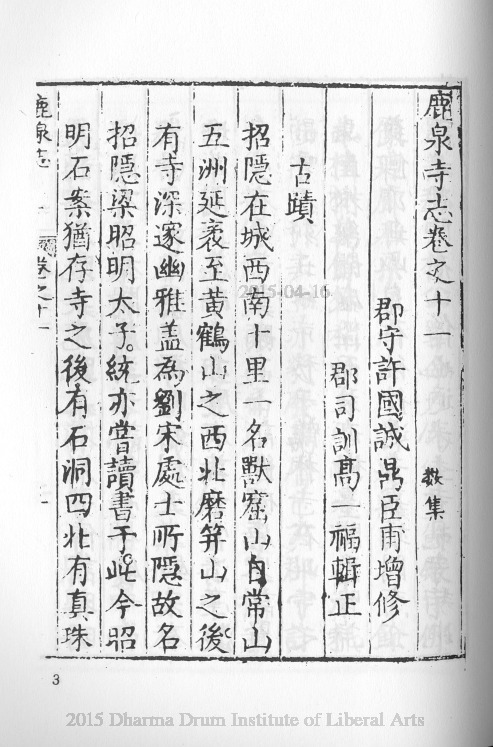 鹿泉寺志卷之十一
數集
郡守許國誠鼎臣甫增修
郡司訓高一福輯正
古蹟
招隠在城西南十里一名獸窟山自常山
五洲延袤至黄鶴山之西北磨笄山之後
有寺深邃幽雅盖為劉宋處士所隠故名
招隠梁昭明太子統亦嘗讀書于此今昭
明石案猶存寺之後有石洞四北有真珠
鹿泉志
卷之十一
3
2015-04-16
2015 Dharma Drum Institute of Liberal Arts